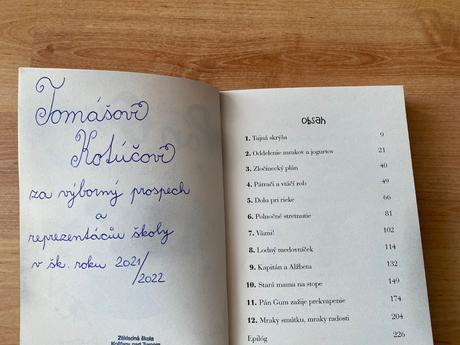 Tomášovi
Kotúčovi
za výborný prospech
a
reprezentáciu školy
v šk. roku 2021/
2022
Základná škola
Obsah
1. Tajná skrýša 9
2. Oddelenie mrakov a jogurtov 21
3. Zločinecký plán 40
4. Pátrači a vtáčí zob 49
5. Dolu pri rieke 66
6. Polnočné stretnutie 81
7. Väzni! 102
8. Lodný medovníček 114
9. Kapitán a Alžbeta 132
10. Stará mama na stope 149
11. Pán Gum zažije prekvapenie 174
12. Mraky smútku, mraky radosti 204
Epilóg 226